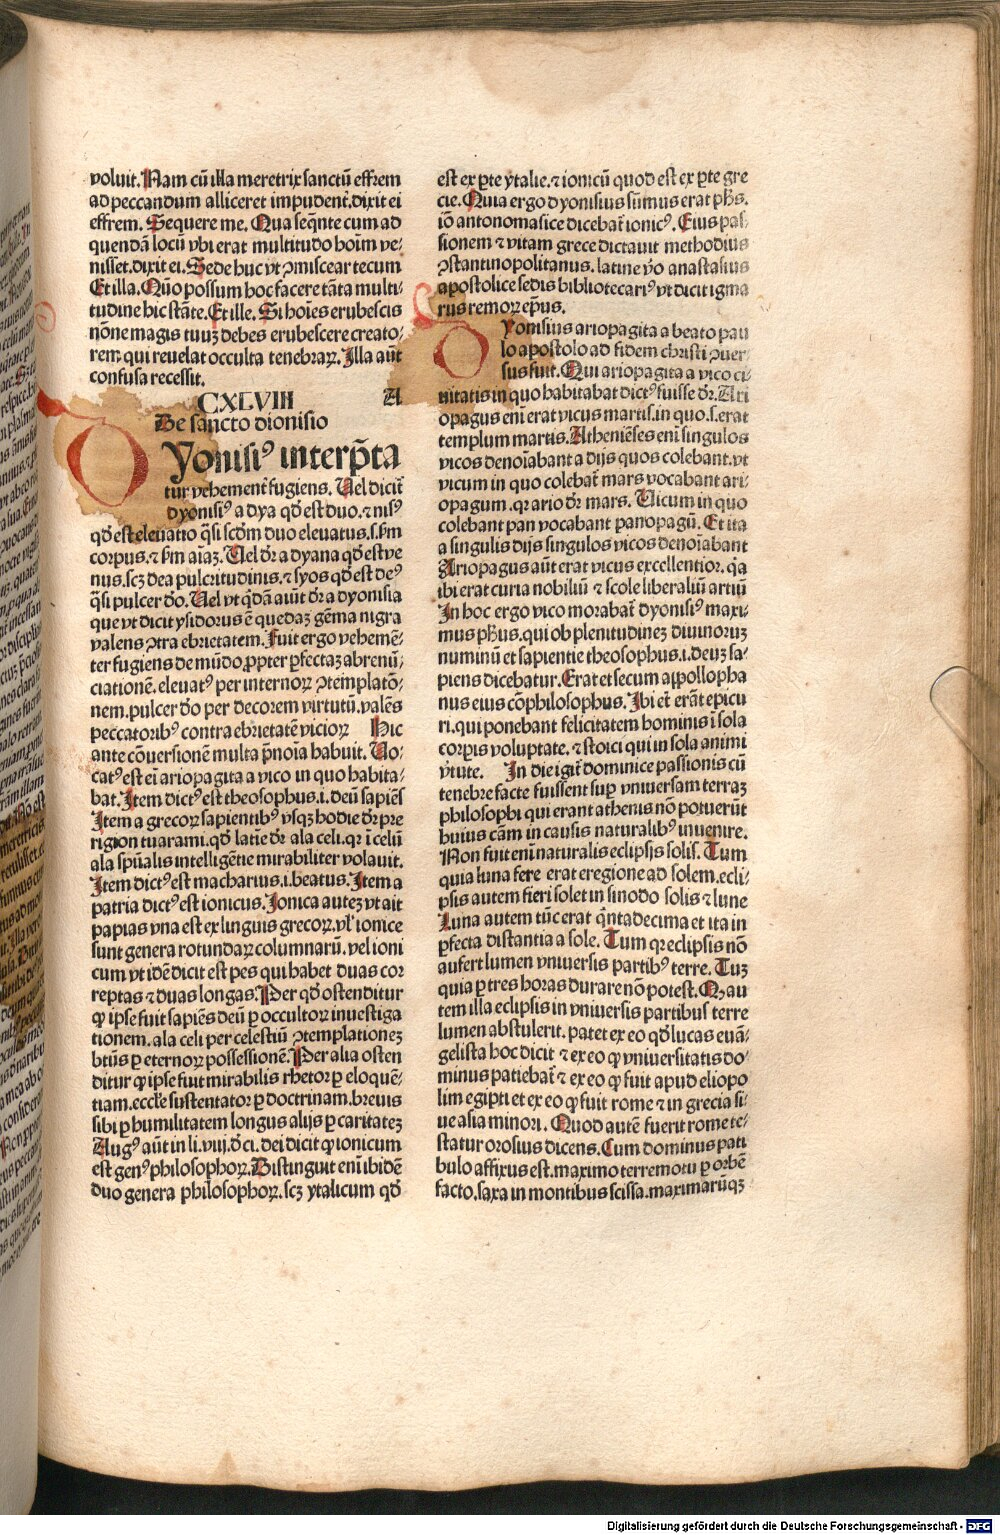 voluit. Nam cū illa meretrix sanctū effrem
ad peccandum alliceret impudent̄. dixit ei
effrem. Sequere me. Qua seq̄nte cum ad
quendā locū vbi erat multitudo hoīm ve⸗
nisset. dixit ei. Sede huc vt ꝯmiscear tecum
Et illa. Quō possum hoc facere tāta multi⸗
tudine hic stāte. Et ille. Si hoīes erubescis
nōne magis tuuꝫ debes erubescere creato⸗
rem. qui reuelat occulta tenebraꝝ. Illa aūt
confusa recessit.
CXLVIII A
De sancto dionisio
DYonisiꝰ interp̄ta
tur vehement̄ fugiens. Vel dicit̄
dyonisiꝰ a dya qd̄ est duo. ⁊ nisꝰ
qd̄ est eleuatio q̄si scd̄m duo eleuatus. s. ẜm
corpus. ⁊ ẜm aīaꝫ. Vel dr̄ a dyana qd̄ est ve
nus. scꝫ dea pulcritudinis. ⁊ syos qd̄ est deꝰ
q̄si pulcer dō. Vel vt q̄dā aiūt dr̄ a dyonisia
que vt dicit ysidorus ē quedaꝫ gēma nigra
valens ꝯtra ebrietatem. Fuit ergo vehemē⸗
ter fugiens de mūdo ꝓpter ꝑfectaꝫ abrenū⸗
ciationē. eleuatꝰ per internoꝝ ꝯtemplatō⸗
nem. pulcer dō per decorem virtutū. valēs
peccatoribꝰ contra ebrietatē vicioꝝ Hic
ante cōuersionem multa p̄noīa habuit. Vo⸗
catꝰ est eī ariopagita a vico in quo habita⸗
bat. Item dictꝰ est theosophus. i. deū sapiēs
Item a grecoꝝ sapientibꝰ vsqꝫ hodie dr̄ pre
rigion tuarami. qd̄ latīe dr̄ ala celi. qr ī celū
ala spūalis intelligētie mirabiliter volauit.
Item dictꝰ est macharius. i. beatus. Item a
patria dictꝰ est ionicus. Ionica auteꝫ vt ait
papias vna est ex linguis grecoꝝ. vl' ionice
sunt genera rotundaꝝ columnarū. vel ioni
cum vt idē dicit est pes qui habet duas cor
reptas ⁊ duas longas. Per qd̄ ostenditur
ꝙ ipse fuit sapiēs deū ꝑ occultoꝝ inuestiga
tionem. ala celi per celestiū ꝯtemplationeꝫ
btūs ꝑ eternoꝝ possessionē. Per alia osten
ditur ꝙ ipse fuit mirabilis rhetor ꝑ eloquē⸗
tiam. eccl̄e sustentator ꝑ doctrinam. breuis
sibi ꝑ humilitatem longus alijs ꝑ caritateꝫ
Augꝰ aūt in li. viij. d̄ ci. dei dicit ꝙ ionicum
est genꝰ philosophoꝝ. Distinguit enī ibidē
duo genera philosophoꝝ. scꝫ ytalicum qd̄
est ex ꝑte ytalie. ⁊ ionicū quod est ex ꝑte gre
cie. Quia ergo dyonisius sūmus erat ph̄s.
iō antonomasice dicebat̄ ionicꝰ. Eius pas⸗
sionem ⁊ vitam grece dictauit methodius
ꝯstantinopolitanus. latine v̄o anastasius
apostolice sedis bibliotecariꝰ vt dicit igma
rus remoꝝ ep̄us.
DYonisius ariopagita a beato pau
lo apostolo ad fidem christi ꝯuer⸗
sus fuit. Qui ariopagita a vico ci⸗
uitatis in quo habitabat dictꝰ fuisse dr̄. Ari
opagus enī erat vicus martis. in quo. s. erat
templum martis. Atheniēses enī singulos
vicos denoīabant a dijs quos colebant. vt
vicum in quo colebāt mars vocabant ari⸗
opagum. qr ario dr̄ mars. Vicum in quo
colebant pan vocabant panopagū. Et ita
a singulis dijs singulos vicos denoīabant
Ariopagus aūt erat vicus excellentior. q̄a
ibi erat curia nobiliū ⁊ scole liberaliū artiū
In hoc ergo vico morabat̄ dyonisiꝰ maxi⸗
mus ph̄us. qui ob plenitudineꝫ diuinoruꝫ
numinū et sapientie theosophus. i. deuꝫ sa⸗
piens dicebatur. Erat et secum appollopha
nus eius cōphilosophus. Ibi et̄ erāt epicu
ri. qui ponebant felicitatem hominis ī sola
corꝑis voluptate. ⁊ stoici qui in sola animi
v̄tute. In die igit̄ dominice passionis cū
tenebre facte fuissent suꝑ vniuersam terraꝫ
philosophi qui erant athenis nō potuerūt
huius cām in causis naturalibꝰ inuenire.
Non fuit enī naturalis eclipsis solis. Tum
quia luna fere erat e regione ad solem. ecli⸗
psis autem fieri solet in sinodo solis ⁊ lune
Luna autem tūc erat q̄ntadecuma et ita in
ꝑfecta distantia a sole. Tum qr eclipsis nō
aufert lumen vniuersis partibꝰ terre. Tuꝫ
quia ꝑ tres horas durare nō potest. Qꝫ au
tem illa eclipsis in vniuersis partibus terre
lumen abstulerit. patet ex eo qd̄ lucas euā⸗
gelista hoc dicit ⁊ ex eo ꝙ vniuersitatis do⸗
minus patiebat̄ ⁊ ex eo ꝙ fuit apud eliopo
lim egipti et ex eo ꝙ fuit rome ⁊ in grecia si⸗
ue asia minori. Quod autē fuerit rome te⸗
statur orosius dicens. Cum dominus pati
bulo affixus est. maximo terremotu ꝑ orbē
facto. saxa in montibus scissa. maximarūqꝫ
Digitalisierung gefördert durch die Deutsche Forschungsgemeinschaft - DFG